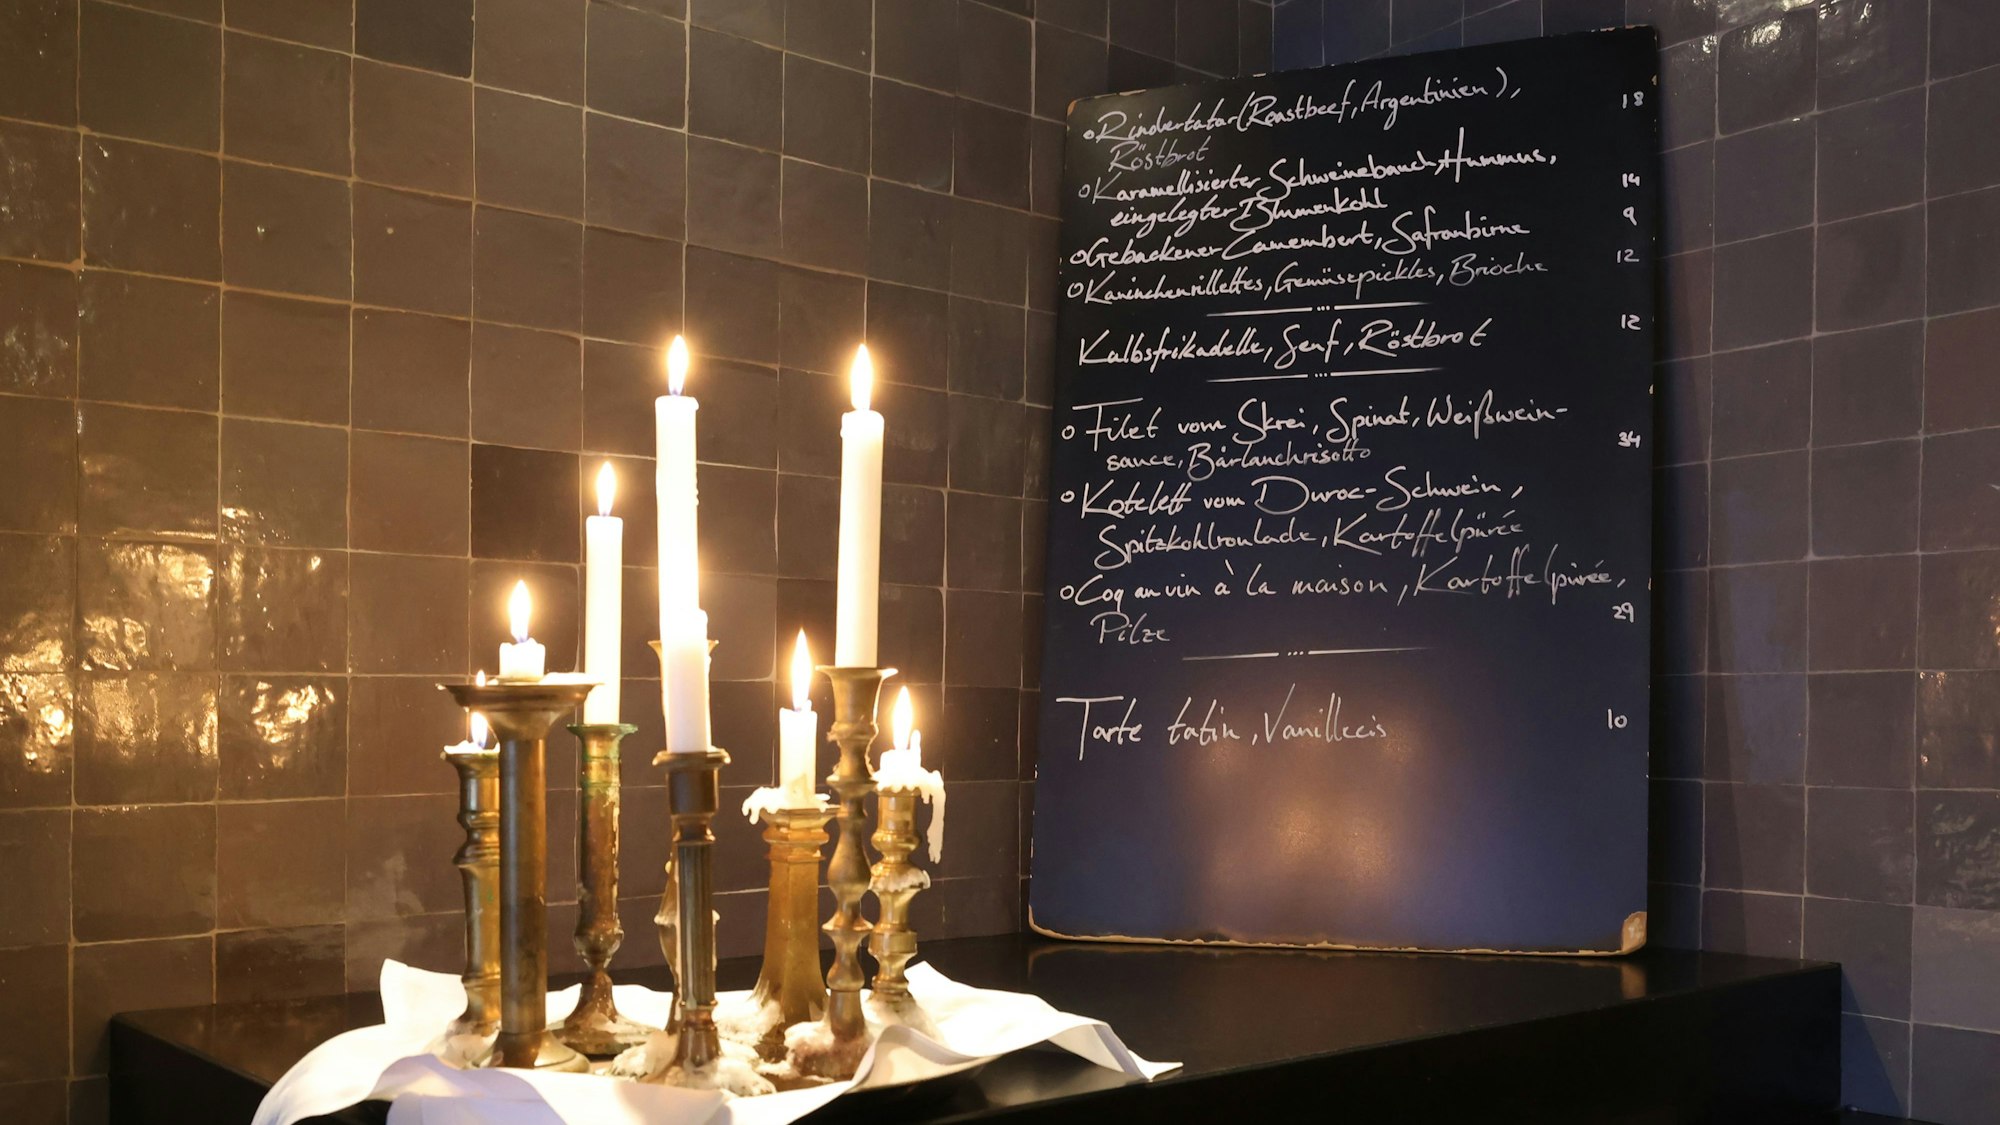 Rindertatar (Roastbeef, Argentinien), 18
Röstbrot
Karamellisierter Schweinebauch, Hummus, 14
eingelegter Blumenkohl
Gebackener Camembert, Safranbirne 9
Kaninchenrillettes, Gemüsepickles, Brioche 12
Kalbsfrikadelle, Senf, Röstbrot 12
Filet vom Skrei, Spinat, Weißwein-
sauce, Bärlauchrisotto 34
Kotelett vom Duroc-Schwein,
Spitzkohlroulade, Kartoffelpürée
Coq au vin à la maison, Kartoffelpürée,
Pilze 29
Tarte tatin, Vanilleeis 10